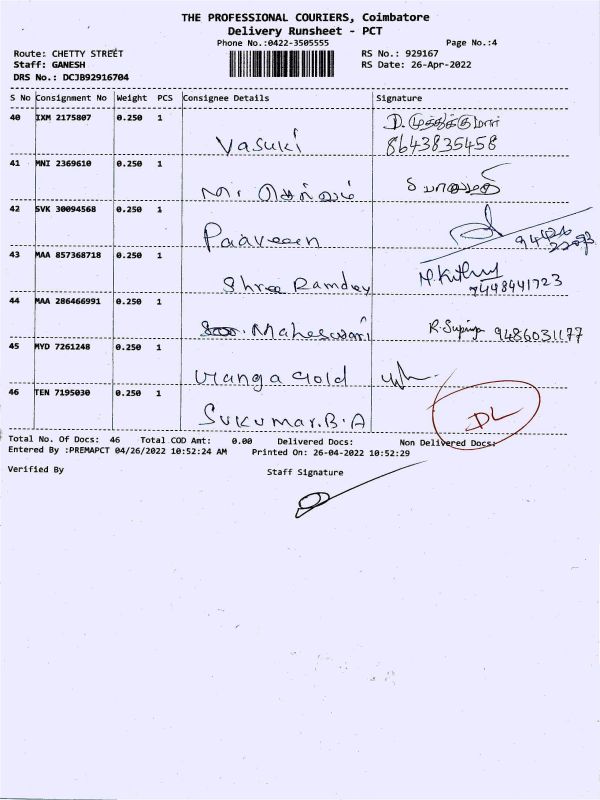 THE PROFESSIONAL COURIERS, Coimbatore
Delivery Runsheet - PCT
Phone No.:0422-3505555
Page No.:4
Route: CHETTY STREET
RS No.: 929167
Staff: GANESH
RS Date: 26-Apr-2022
DRS No.: DCJB92916704
S No Consignment No Weight PCS Consignee Details Signature
40 IXM 2175807 0.250 1
Vasuki
D. முத்துக்குமார்
8643835458
41 MNI 2369610 0.250 1
Mr. செல்வம்
42 SVK 30094568 0.250 1
Paaveen
43 MAA 857368718 0.250 1
Shree Ramdev
7448441723
44 MAA 286466991 0.250 1
Maheswari
R. Supriya 9486031177
45 MYD 7261248 0.250 1
Viranga Gold
46 TEN 7195030 0.250 1
Sukumar.B.A
DL
Total No. Of Docs: 46 Total COD Amt: 0.00 Delivered Docs: Non Delivered Docs:
Entered By :PREMAPCT 04/26/2022 10:52:24 AM Printed On: 26-04-2022 10:52:29
Verified By Staff Signature